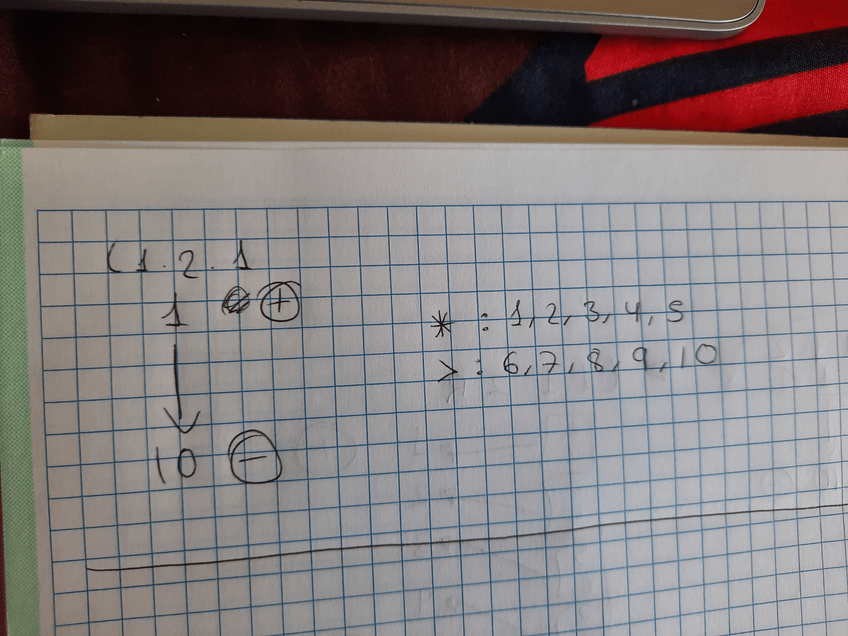 (1.2.1
1 +
↓
10 -
* : 1, 2, 3, 4, 5
> : 6, 7, 8, 9, 10